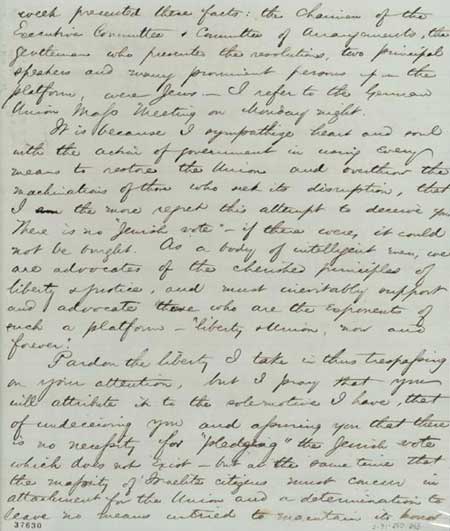 week presented these facts: the Chairman of the
Executive Committee & Committee of Arrangements, the
gentleman who presented the resolutions, two principal
speakers and many prominent persons upon the
platform, were Jews – I refer to the German
Union Mass Meeting on Monday night.
It is because I sympathize heart and soul
with the action of government in using every
means to restore the Union and overthrow the
machinations of those who seek its disruption, that
I the more regret this attempt to deceive you
There is no "Jewish vote" – if there were, it could
not be bought. As a body of intelligent men, we
are advocates of the cherished principles of
liberty & justice, and must inevitably support
and advocate those who are the exponents of
such a platform – "liberty & Union, now and
forever"
Pardon the liberty I take in thus trespassing
on your attention, but I pray that you
will attribute it to the sole motive I have, that
of undeceiving you and assuring you that there
is no necessity for "pledging" the Jewish vote
which does not exist – but at the same time that
the majority of Israelite citizens must concur in
attachment for the Union and a determination to
leave no means untried to maintain its honor
37630